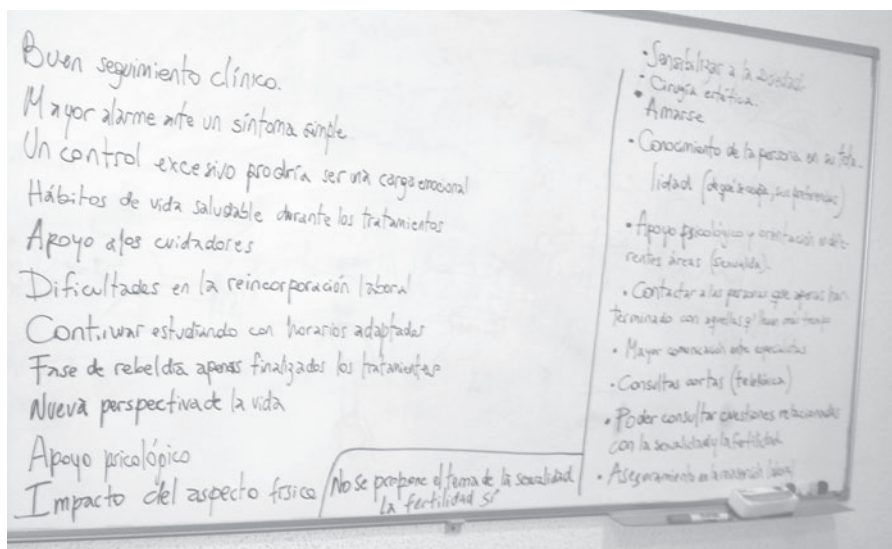 Buen seguimiento clínico.
Mayor alarme ante un síntoma simple
Un control excesivo prodría ser una carga emocional
Hábitos de vida saludable durante los tratamientos
Apoyo a los cuidadores
Dificultades en la reincorporación laboral
Continuar estudiando con horarios adaptados
Fase de rebeldía apenas finalizados los tratamientos
Nueva perspectiva de la vida
Apoyo psicológico
Impacto del aspecto físico
No se propone el tema de la sexualidad
la fertilidad sí
• Sensibilizar a la sociedad.
• Cirugía estética.
• Amarse
• Conocimiento de la persona en su tota-
lidad (de qué se ocupa, sus preferencias)
• Apoyo psicológico y orientación en dife-
rentes áreas (sexualida).
• Contactar a las personas que apenas han
terminado con aquellas q' llevan más tiempo
• Mayor comunicación entre especialistas
• Consultas cortas (telefónica)
• Poder consultar cuestiones relacionadas
con la sexualidad y la fertilidad.
• Aseguramiento en la materia laboral